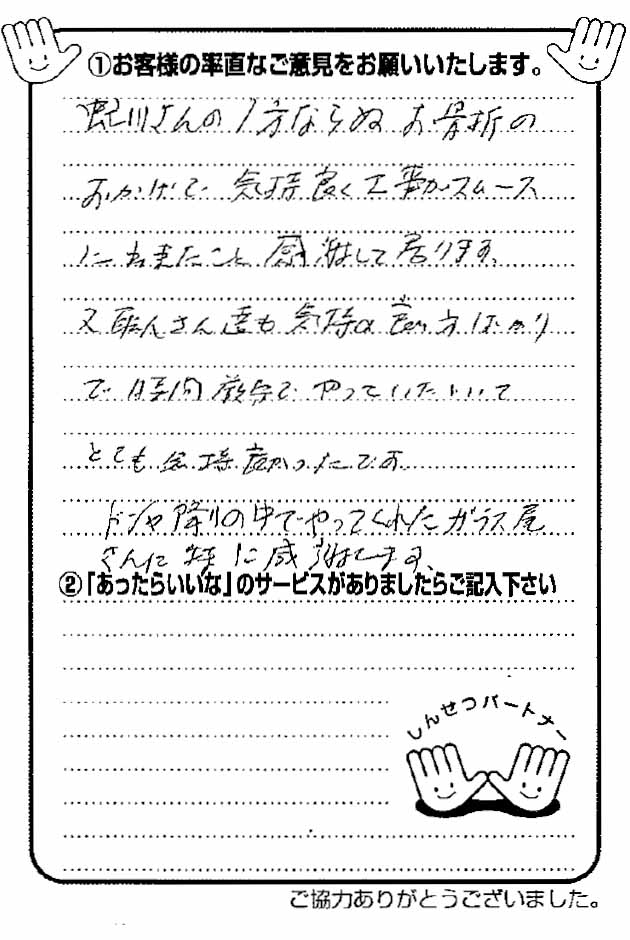 ①お客様の率直なご意見をお願いいたします。
蛭川さんの1方ならぬお骨折の
おかげで気持良く工事がスムース
に出来たこと感謝して居ります。
又職人さん達も気持の良い方ばかり
で時間厳守でやっていただいて
とても気持良かったです。
ドシャ降りの中でやってくれたガラス屋
さんに特に感謝します。
②「あったらいいな」のサービスがありましたらご記入下さい
しんせつパートナー
ご協力ありがとうございました。